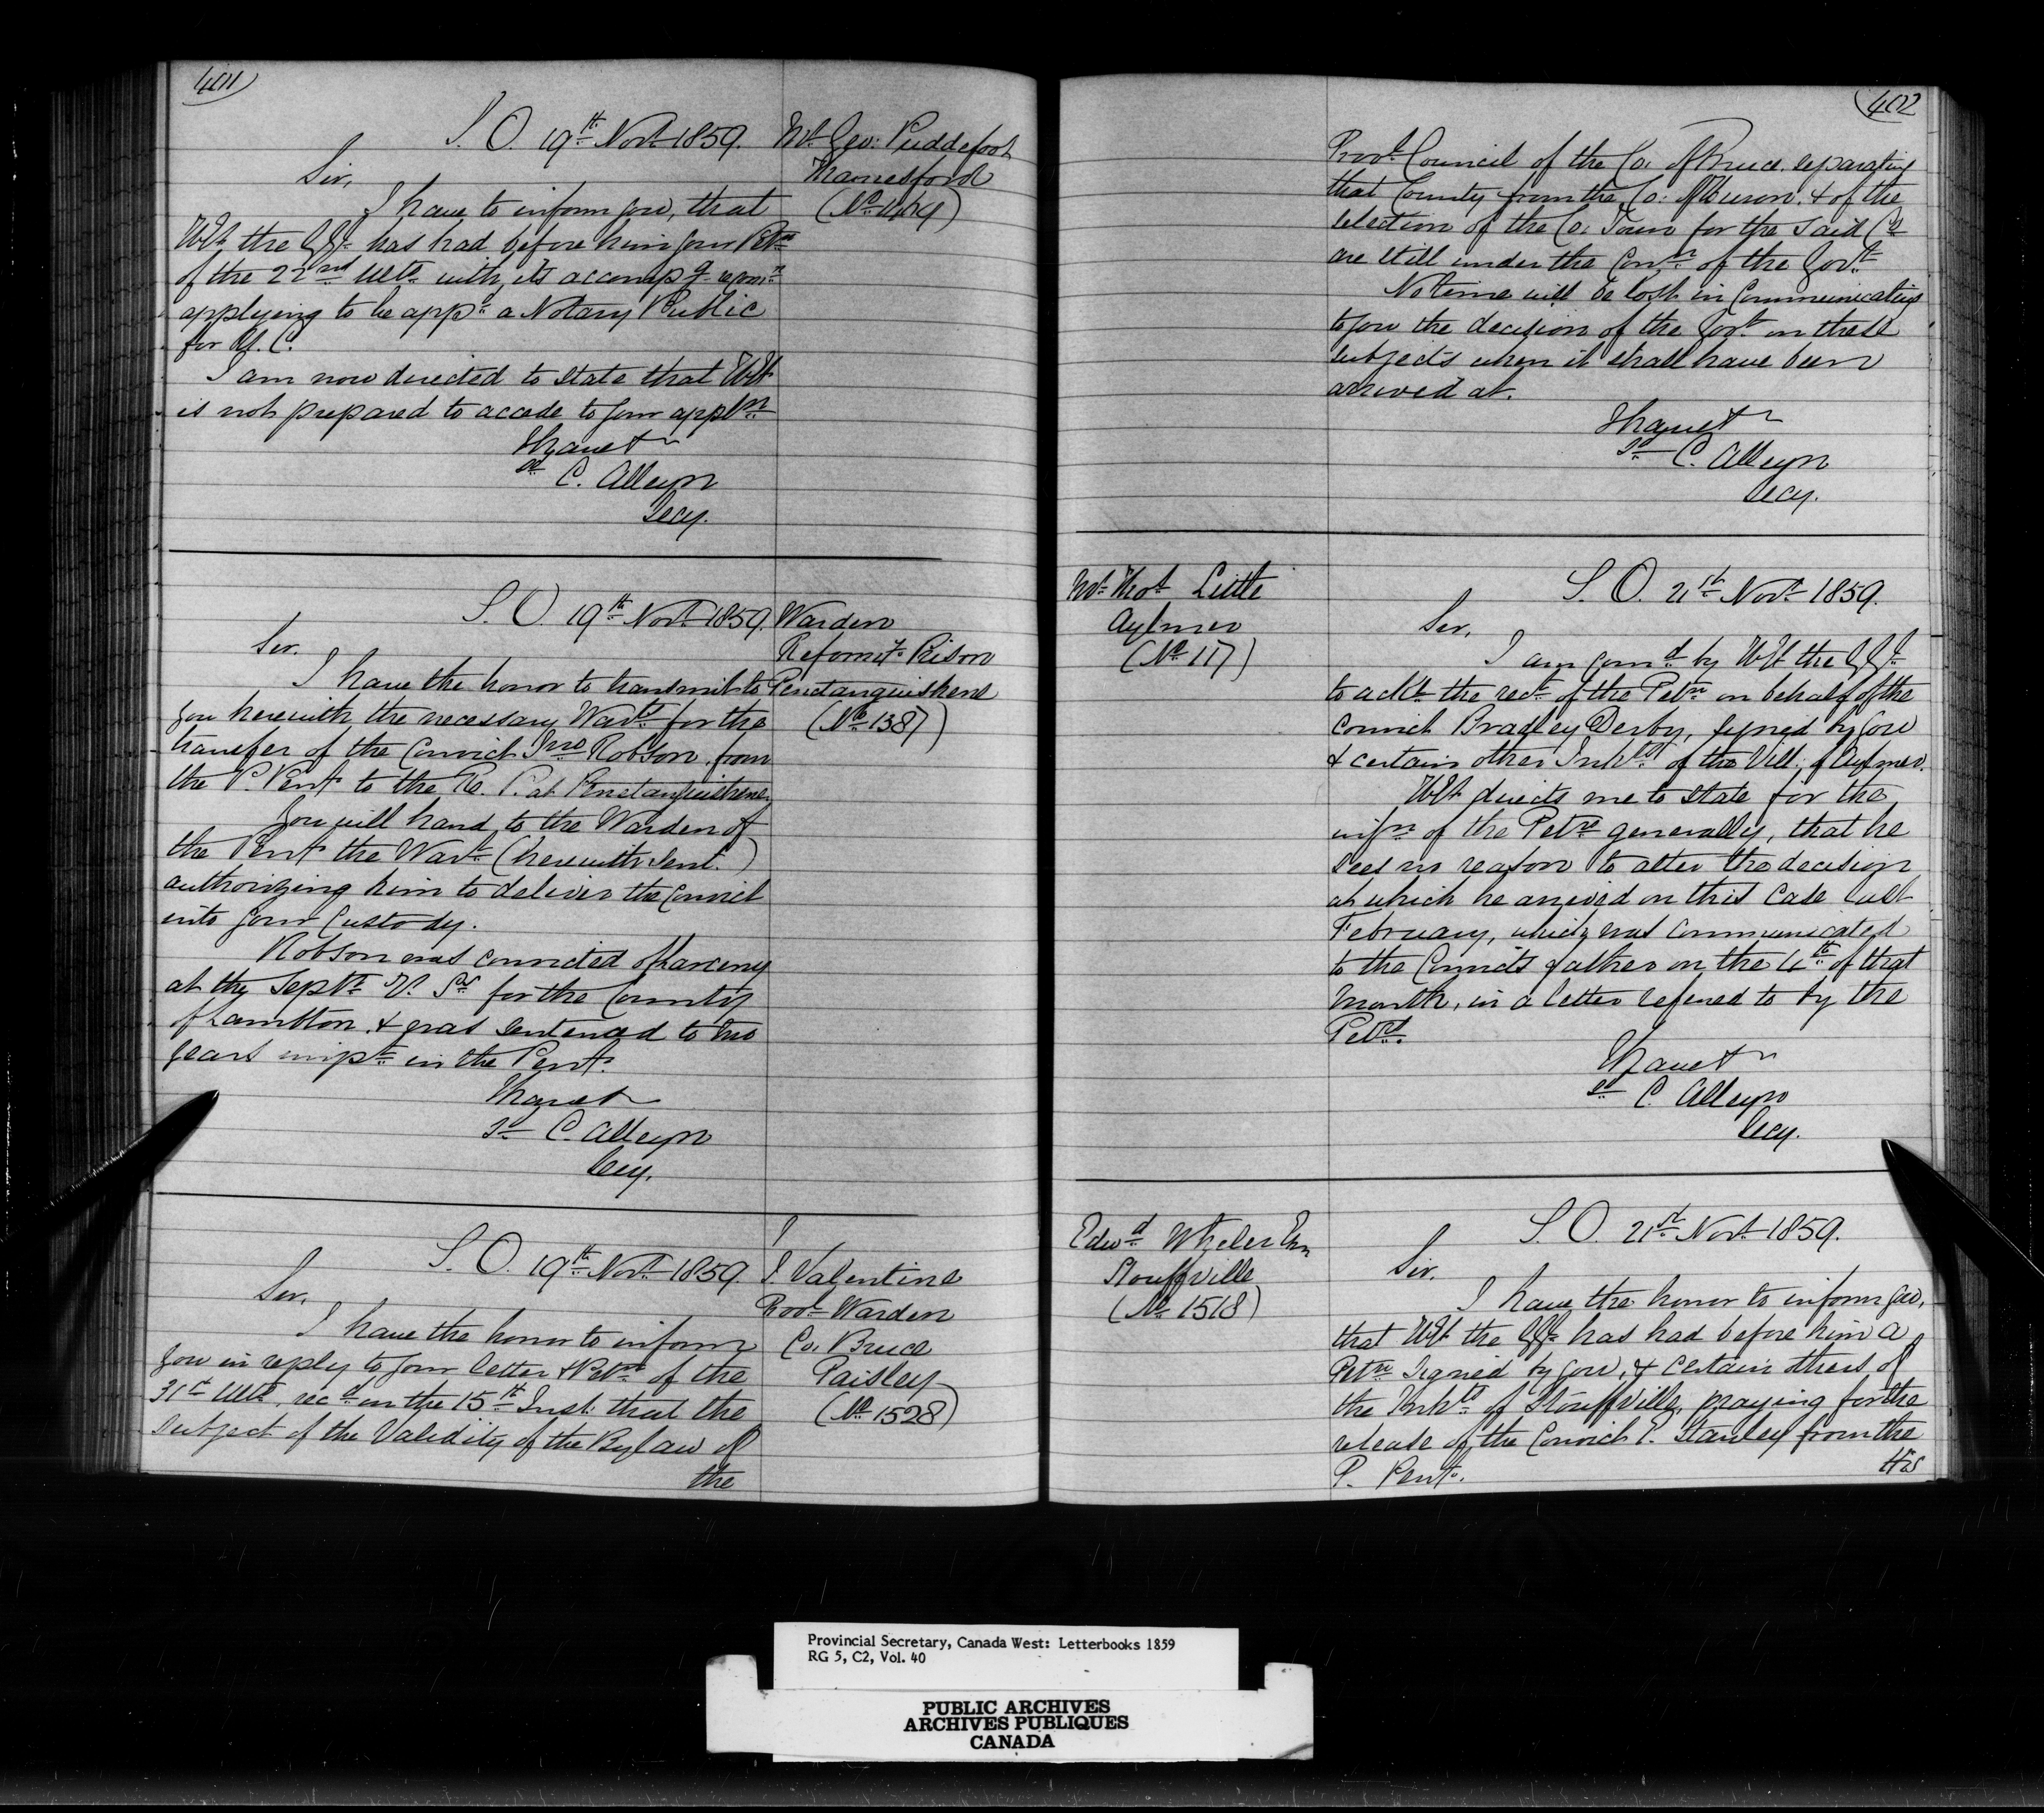 401
S. O. 19th Novr 1859.
Mr Geo: Puddefoot
Thamesford
(No 1404)
Sir,
I have to inform you, that
H.E. the G.G. has had before him your Petn
of the 22nd Ulto with its accompg recomn
applying to be appd a Notary Public
for U. C.
I am now directed to state that H.E.
is not prepared to accede to your appln
I have &
sd C. Alleyn
Secy.
S. O. 19th Novr 1859.
Warden
Reformy Prison
Penetanguishene
(No 1387)
Sir.
I have the honor to transmit to
you herewith the necessary Warts for the
transfer of the Convict Jno Robson, from
the P. Pent to the Re. P. at Penetanguishene
You will hand to the Warden of
the Pent the Wart (herewith sent.)
authorizing him to deliver the Convict
into your Custody.
Robson was convicted of Larceny
at the Septr Q. Ss for the County
of Lambton. & was sentenced to two
years impt in the Pent.
I have &
sd C. Alleyn
Secy.
S. O. 19th Novr 1859.
J. Valentine
Provl Warden
Co. Bruce
Paisley
(No 1528)
Sir.
I have the honor to inform
you in reply to your letter & Petn of the
31st Ulto, recd on the 15th Inst: that the
subject of the Validity of the Bylaw of
the
402
Provl Council of the Co. of Bruce separating
that County from the Co: of Huron. & of the
selection of the Co. Town for the said Co
are still under the Conn of the Govt
No time will be lost in Communicating
to you the decision of the Govt on these
subjects when it shall have been
arrived at.
I have &
sd C. Alleyn
Secy.
Mr Thos Little
Aylmer
(No 117)
S. O. 21st Novr 1859.
Sir,
I am comd by H.E. the G.G.
to ackn the rect of the Petn on behalf of the
convict Bradley Derby, signed by you
& certain other Inhts of the Vill: of Aylmer.
H.E. directs me to state for the
infn of the Petrs generally, that he
sees no reason to alter the decision
at which he arrived on this Case last
February, which was communicated
to the Convict's father on the 4th of that
month, in a letter refered to by the
Petrs.
I have &
sd C. Alleyn
Secy.
Edwd Wheler Esq
Stouffville
(No 1518)
S. O. 21st Novr 1859.
Sir.
I have the honor to inform you,
that H.E. the G.G. has had before him a
Petn signed by you, & certain others of
the Inhts of Stouffville, praying for the
release of the Convict P. Stanley from the
P. Pent.
His
Provincial Secretary, Canada West: Letterbooks 1859
RG 5, C2, Vol. 40
PUBLIC ARCHIVES
ARCHIVES PUBLIQUES
CANADA